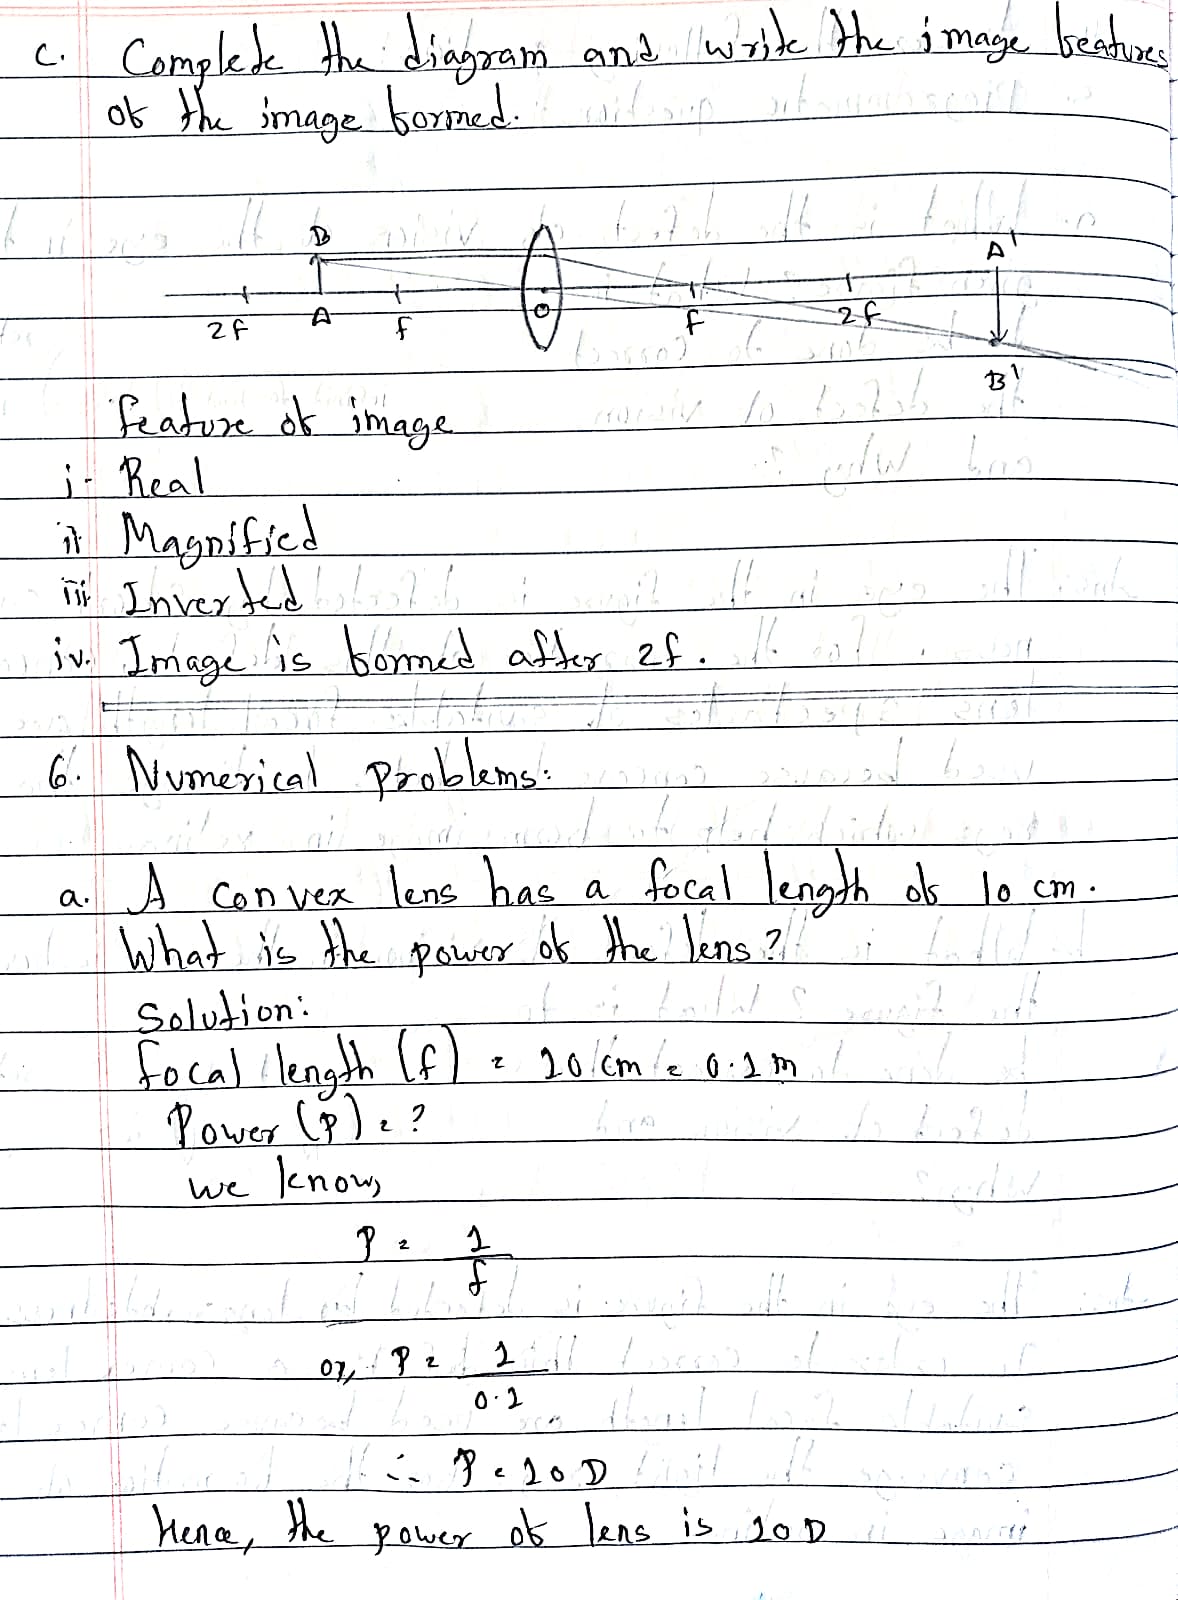 c. Complete the diagram and write the image features
of the image formed.
B
A'
2f A f f 2f
O
B'
feature of image
i- Real
ii- Magnified
iii- Inverted
iv. Image is formed after 2f.
6. Numerical Problems:
a. A convex lens has a focal length of 10 cm.
What is the power of the lens?
Solution:
focal length (f) = 10 cm = 0.1 m
Power (P) = ?
we know,
P = 1
f
or, P = 1
0.1
∴ P = 10 D
Hence, the power of lens is 10D